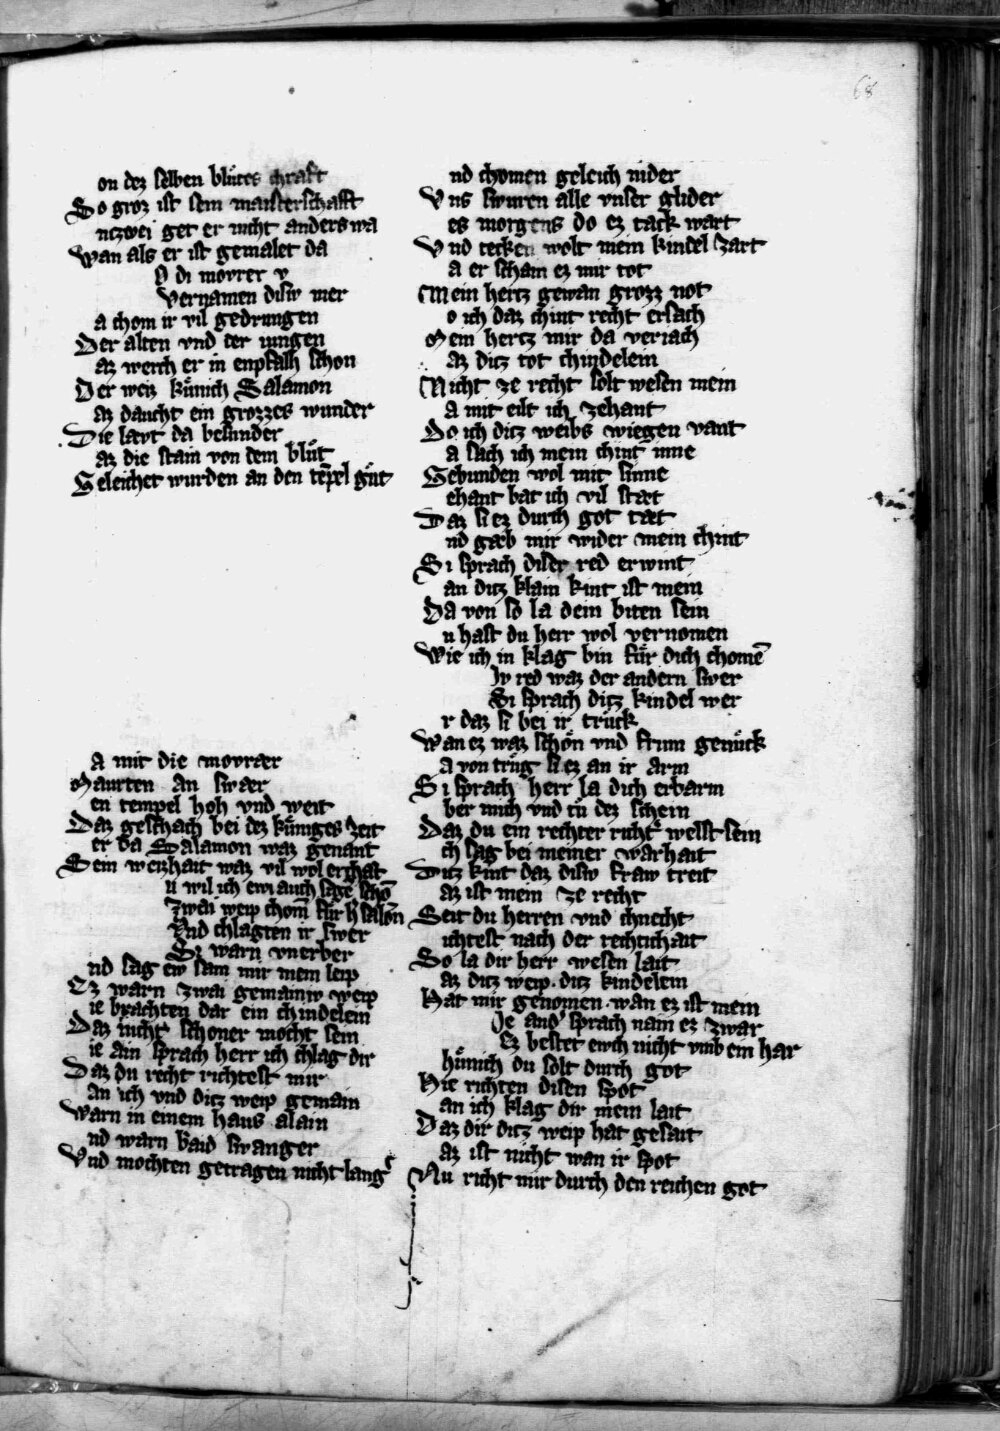 68
on dez selben blůtes chraft
So groz ist sein maisterschafft
nczwei get er nicht anderswa
Wan als er ist gemalet da
O di movrer v
vernamen disiv mer
a chom ir vil gedrungen
Der alten vnd der iungen
az werch er in enpfalh schon
Der weiz kůnich Salamon
az daucht ein grozzes wunder
Die lavt da besunder
az die stain von dem blůt
Geleichet wurden an den tēpel gůt
a mit die movrær
Maurten an swær
en tempel hoh vnd weit
Daz geschach bei dez kůniges zeit
er da Salamon waz genant
Sein weizhait waz vil wol erchāt
u wil ich ew auch sagē schō
Zwai weip chom̄ fůr h̄ salōn
Vnd chlagten ir swer
Si warn vnerber
nd sag ew sam mir mein leip
Ez warn zwai gemainiv weip
ie brachten dar ein chindelein
Daz nicht schoner mocht sein
ie ain sprach herr ich chlag dir
Daz du recht richtest mir
an ich vnd dicz weip gemain
Warn in einem haus alain
nd warn baid swanger
Vnd mochten getragen nicht lang̉
nd chomen geleich nider
Vns swuren alle vnser glider
es morgens do ez tack wart
Vnd tecken wolt mein kindel zart
a er scham ez mir tot
Mein hertz gewan grozz not
o ich daz chint recht ersach
Mein hertz mir da veriach
az dicz tot chindelein
Nicht ze recht solt wesen mein
a mit eilt ich zehant
Do ich dicz weibs wiegen vant
a sach ich mein chint inne
Gebunden wol mit sinne
ehant bat ich vil stæt
Daz si ez durch got tæt
nd gæb mir wider mein chint
Si sprach diser red erwint
an dicz klain kint ist mein
Da von so la dein biten sein
u hast du herr wol vernomen
Wie ich in klag bin fůr dich chomē
Iv red waz der andern swer
Si sprach dicz kindel wer
r daz si bei ir trůck
Wan ez waz schön vnd frum genůck
a von trůg si ez an ir arm
Si sprach herr la dich erbarm
ber mich vnd tů dez schein
Daz du ein rechter richt̉ wellst sein
ch sag bei meiner warhait
Dicz kint daz disiv fraw treit
az ist mein ze recht
Seit du herren vnd chnecht
ichtest nach der rechtichait
So la dir herr wesen lait
az dicz weip dicz kindelein
Hat mir genomen wan ez ist mein
Ie and̉ sprach nain ez zwar
Ez bestet ewch nicht vmb ein har
hůnich du solt durch got
Hie richten disen spot
an ich klag dir mein lait
Daz dir dicz weip hat gesait
az ist nicht wan ir spot
Nu richt mir durch den reichen got